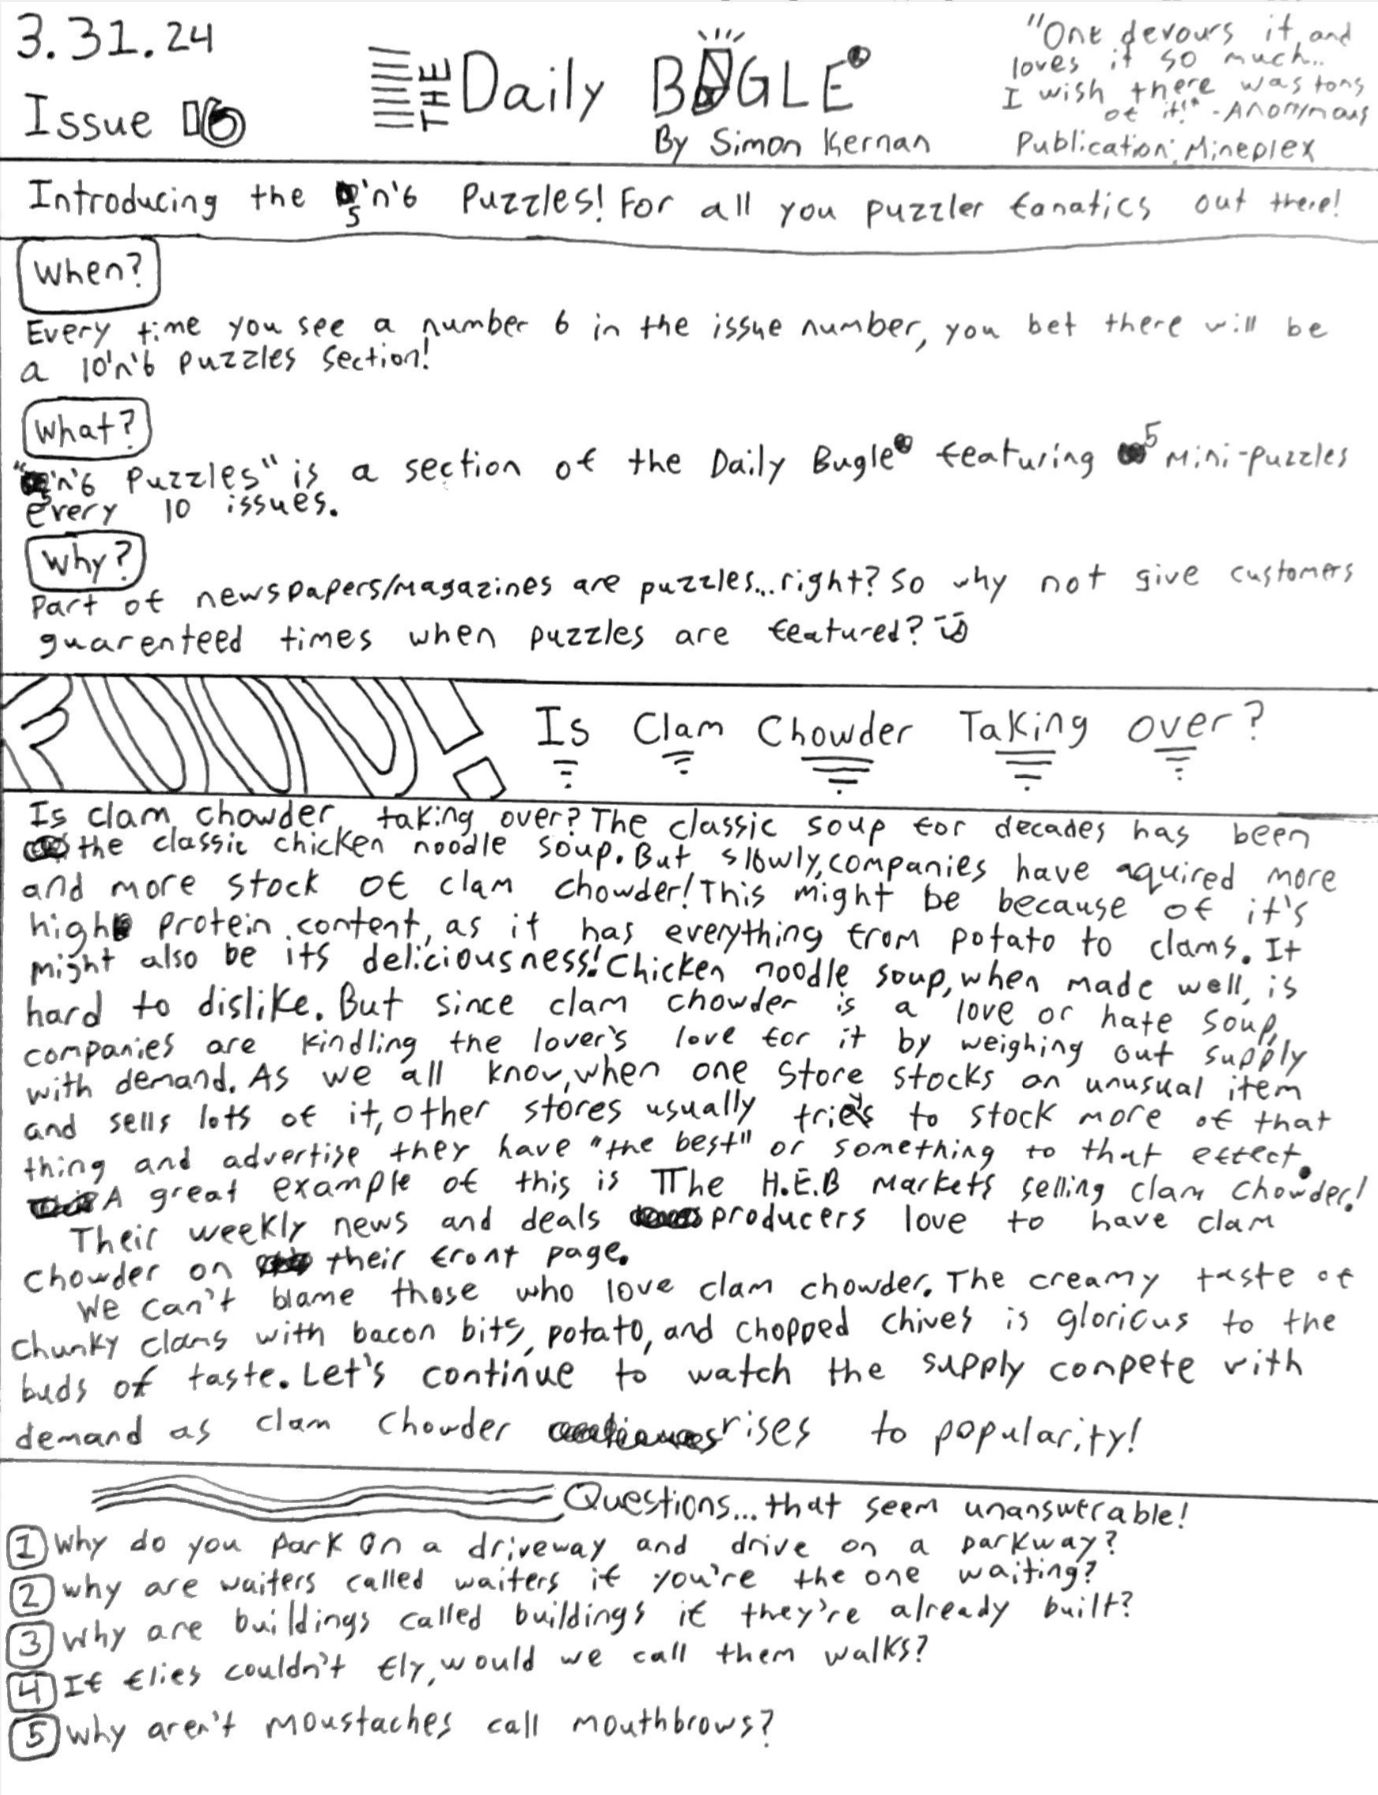 3.31.24
Issue 16
THE Daily BUGLE
By Simon Kernan
"One devours it and
loves it so much..
I wish there was tons
of it!" -Anonymous
Publication: Mineplex
Introducing the 5'n'6 Puzzles! For all you puzzler fanatics out there!
When?
Every time you see a number 6 in the issue number, you bet there will be
a 10'n'6 puzzles section!
What?
"5'n'6 Puzzles" is a section of the Daily Bugle featuring 5 Mini-puzzles
every 10 issues.
Why?
Part of newspapers/magazines are puzzles...right? So why not give customers
guarenteed times when puzzles are featured?
FOOD! Is Clam Chowder Taking over?
Is clam chowder taking over? The classic soup for decades has been
the classic chicken noodle soup. But slowly, companies have aquired more
and more stock of clam chowder! This might be because of it's
high protein content, as it has everything from potato to clams. It
might also be its deliciousness! Chicken noodle soup, when made well, is
hard to dislike. But since clam chowder is a love or hate soup,
companies are kindling the lover's love for it by weighing out supply
with demand. As we all know, when one store stocks an unusual item
and sells lots of it, other stores usually try to stock more of that
thing and advertise they have "the best" or something to that effect.
A great example of this is The H.E.B Markets selling clam chowder!
Their weekly news and deals producers love to have clam
chowder on their front page.
We can't blame those who love clam chowder. The creamy taste of
chunky clams with bacon bits, potato, and chopped chives is glorious to the
buds of taste. Let's continue to watch the supply compete with
demand as clam chowder rises to popularity!
Questions...that seem unanswerable!
1 Why do you park on a driveway and drive on a parkway?
2 why are waiters called waiters if you're the one waiting?
3 Why are buildings called buildings if they're already built?
4 If flies couldn't fly, would we call them walks?
5 Why aren't moustaches call mouthbrows?